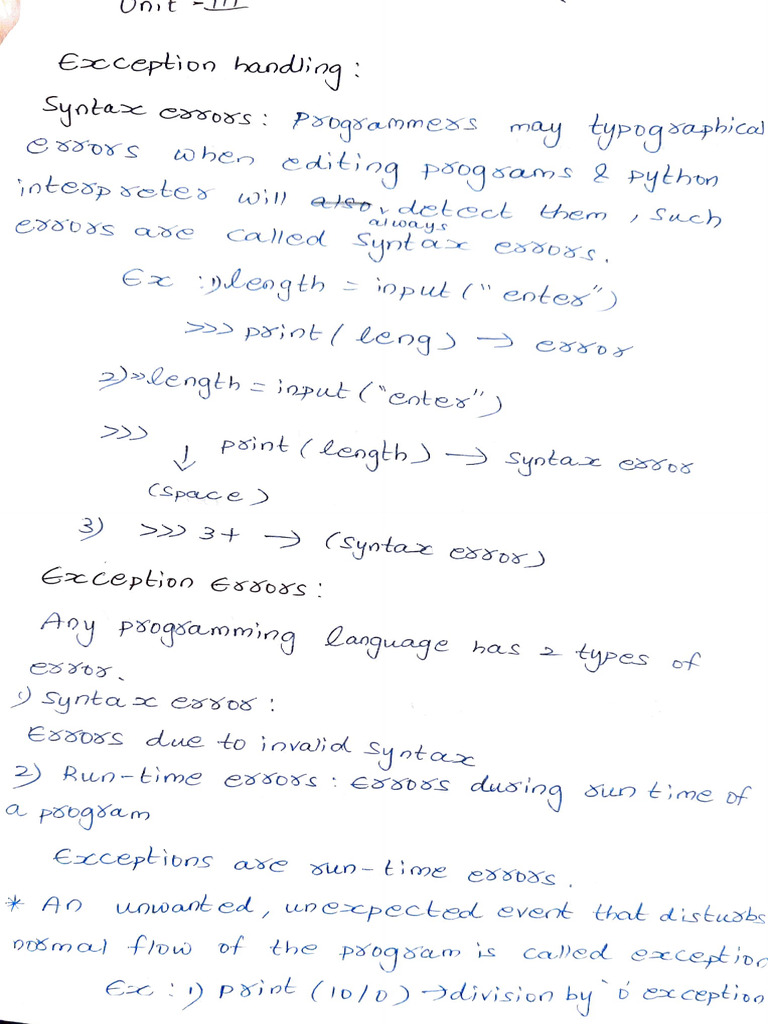 Unit - III
Exception handling :
Syntax errors : Programmers may typographical
errors when editing programs & python
interpreter will also, always detect them, such
errors are called syntax errors.
Ex : 1) length = input (" enter")
>>> print ( leng ) → error
2) >> length = input ("enter")
>>> ↓ print ( length ) → syntax error
(space)
3) >>> 3+ → (syntax error)
Exception Errors :
Any programming language has 2 types of
error.
1) Syntax error :
Errors due to invalid syntax
2) Run-time errors : Errors during run time of
a program
Exceptions are run-time errors.
* An unwanted, unexpected event that disturbs
normal flow of the program is called exception
Ex : 1) print (10/0) → division by '0' exception